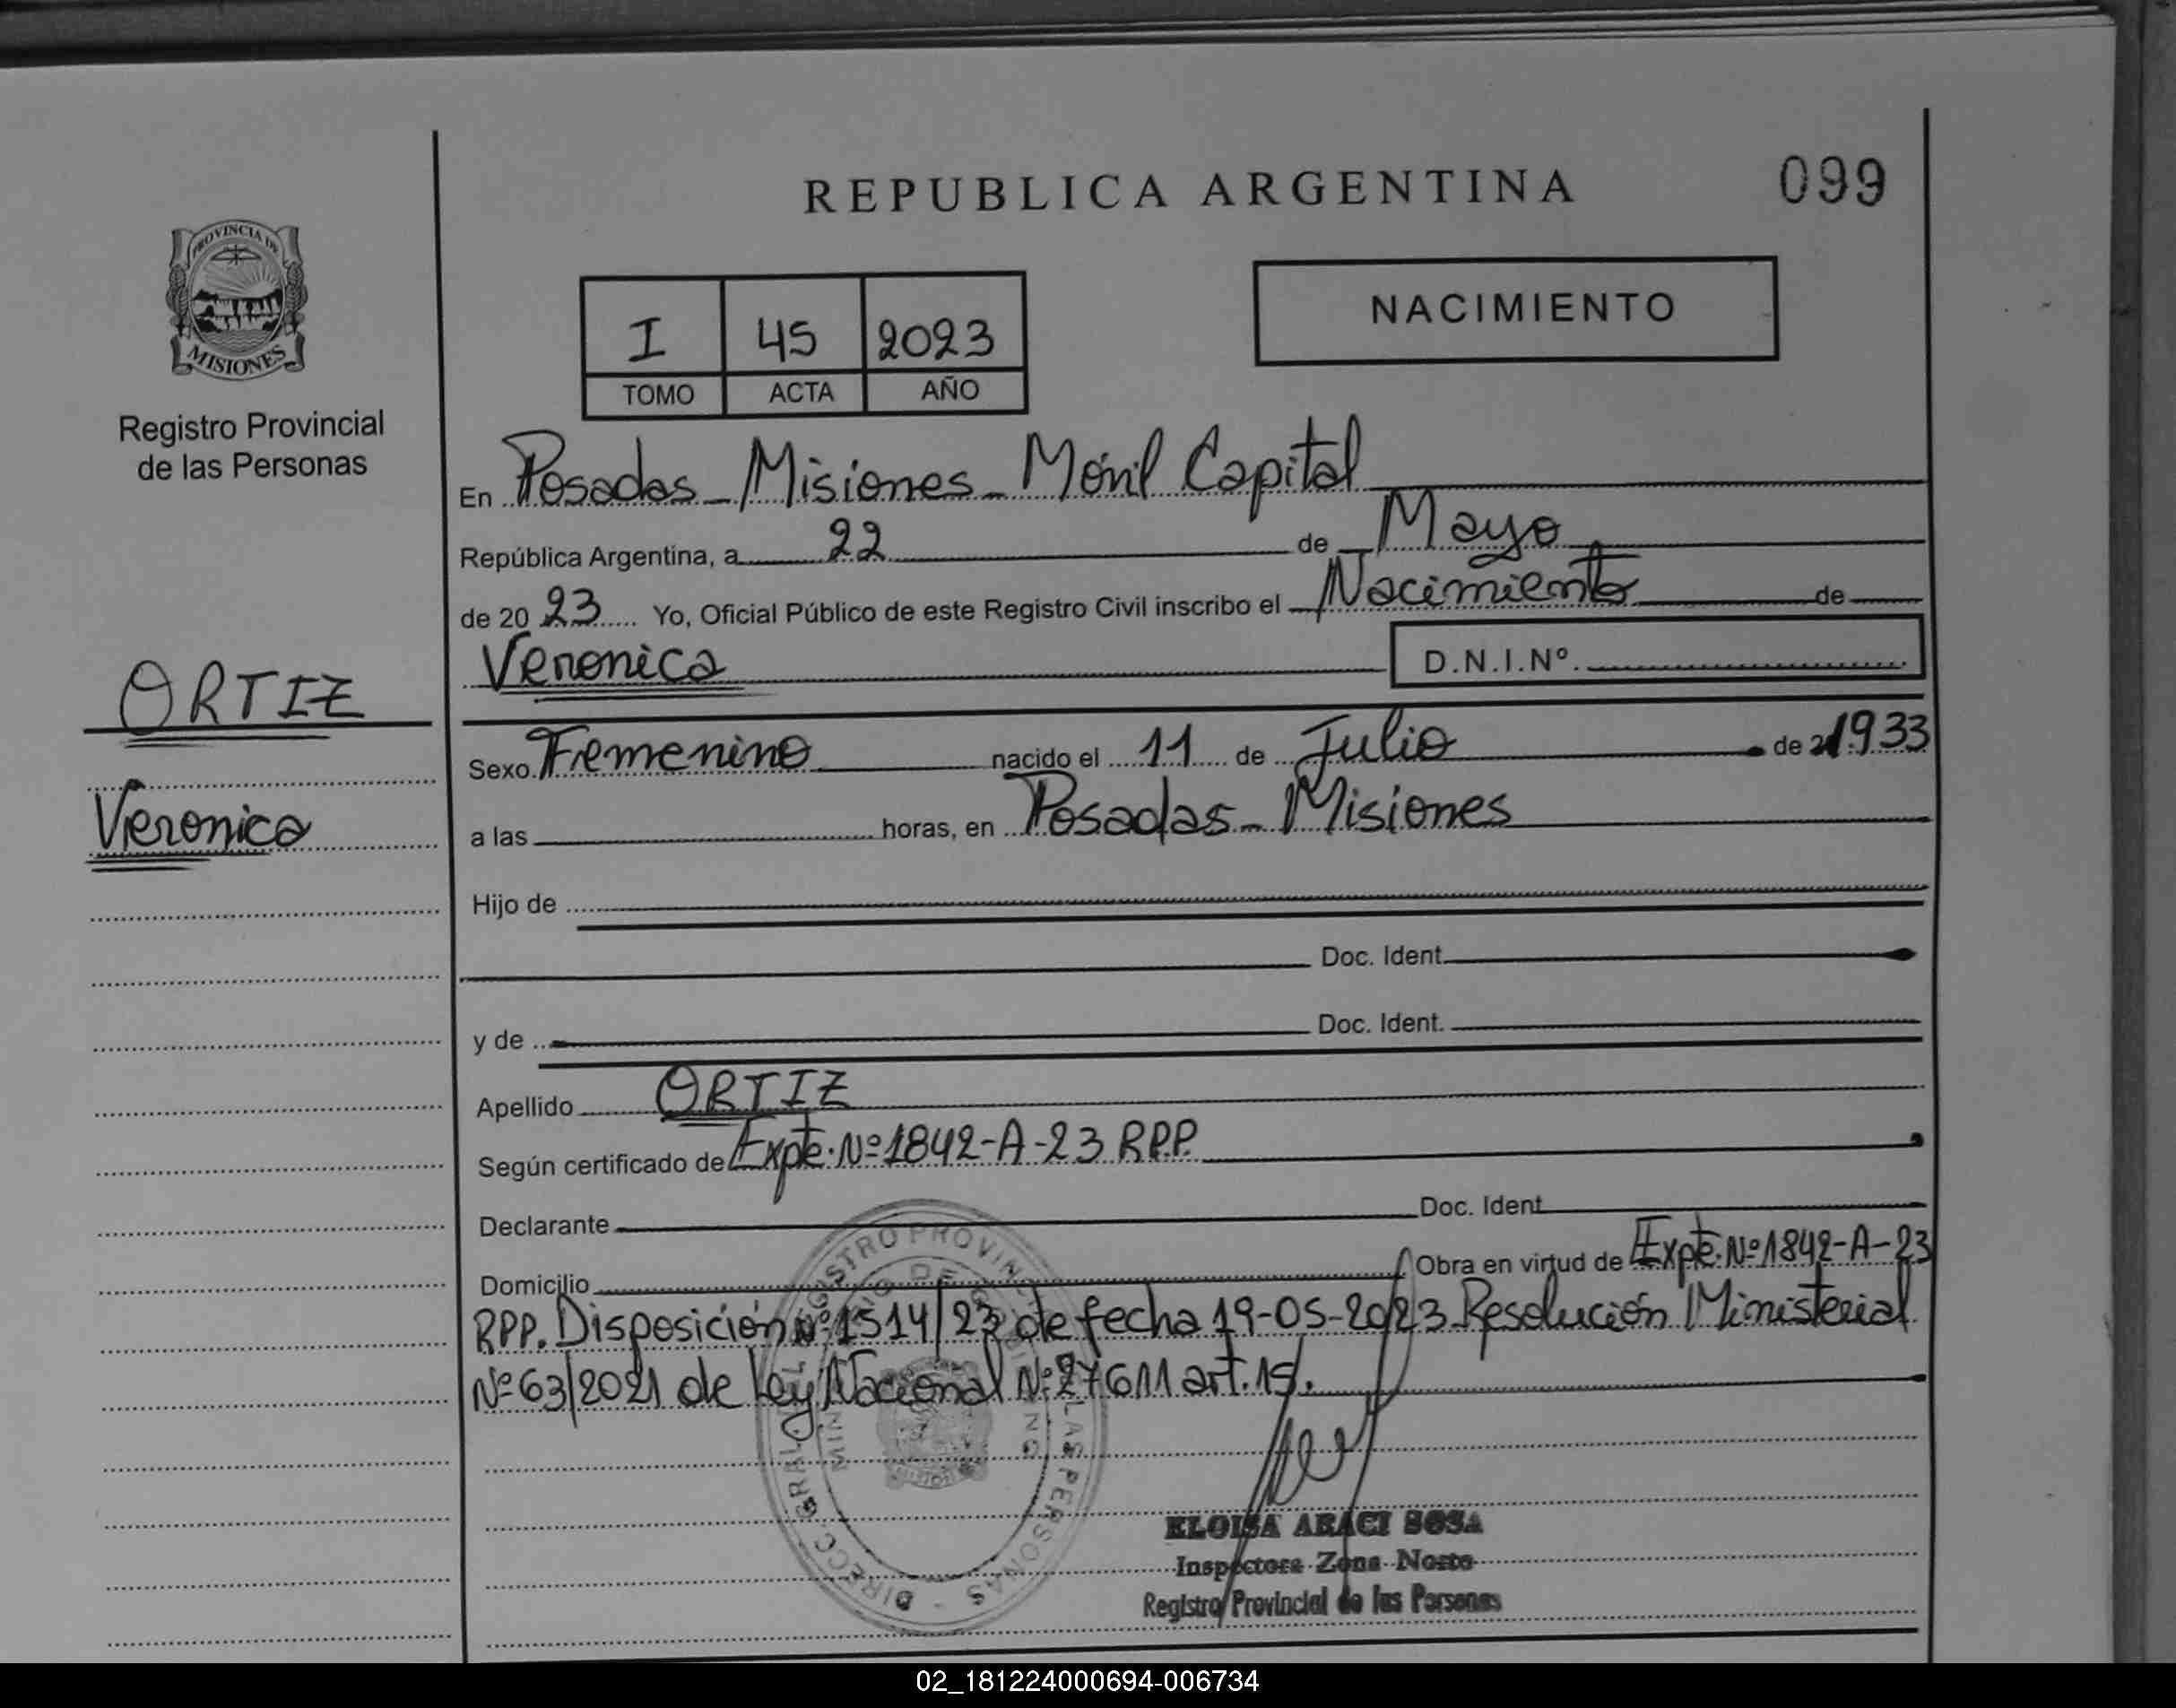 REPUBLICA ARGENTINA
099
PROVINCIA DE
MISIONES
Registro Provincial
de las Personas
I 45 2023
TOMO ACTA AÑO
NACIMIENTO
En Posadas - Misiones - Móvil Capital
República Argentina, a 22 de Mayo
de 20 23 Yo, Oficial Público de este Registro Civil inscribo el Nacimiento de
Veronica D.N.I.Nº.
ORTIZ
Veronica
Sexo Femenino nacido el 11 de Julio de 1933
a las horas, en Posadas - Misiones
Hijo de
Doc. Ident.
y de Doc. Ident.
Apellido ORTIZ
Según certificado de Expte. Nº 1842-A-23 R.P.P.
Declarante Doc. Ident.
Domicilio Obra en virtud de Expte. Nº 1842-A-23
RPP. Disposición Nº 1514/23 de fecha 19-05-2023 Resolución Ministerial
Nº 63/2021 de Ley Nacional Nº 27611 art. 15.
ELOISA ARACI SOSA
Inspectora Zona Norte
Registro Provincial de las Personas
02_181224000694-006734